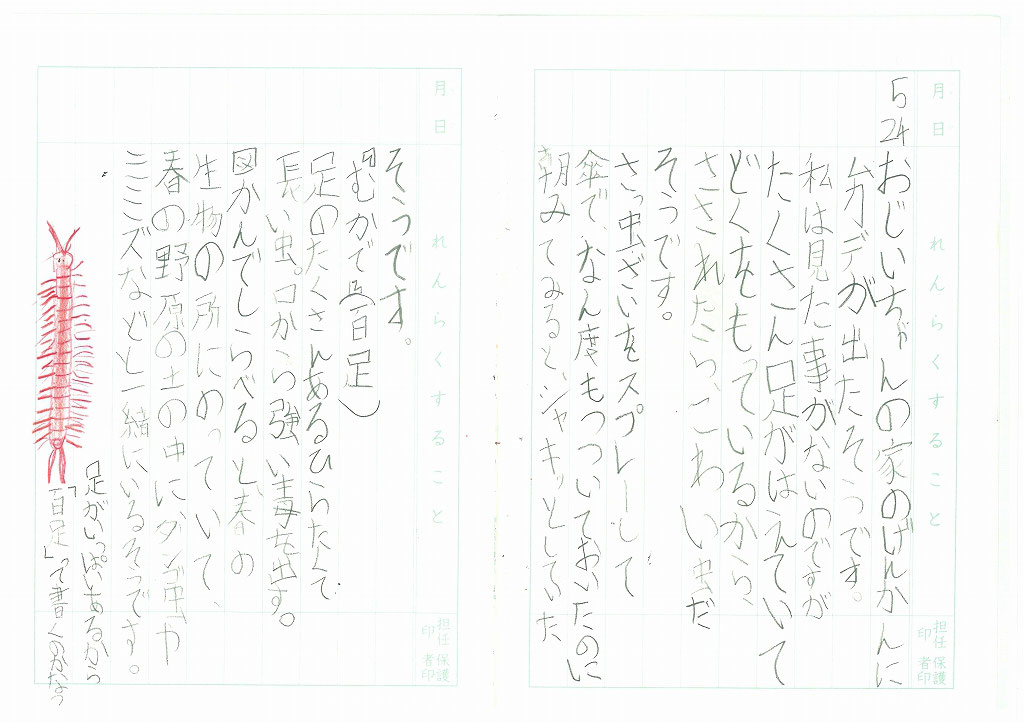 月 日
れんらくすること
担任印
保護者印
5 24
おじいちゃんの家のげんかんに
ムカデが出たそうです。
私は見た事がないのですが
たくさん足がはえていて
どくをもっているから、
さされたら、こわい虫だ
そうです。
さっ虫ざいをスプレーして
傘で、なん度もつついておいたのに
朝みてみると、シャキッとしていた
月 日
れんらくすること
担任印
保護者印
そうです。
『むかで』(百足)
足のたくさんあるひらたくて
長い虫。口から強い毒を出す。
図かんでしらべると、春の
生物の所にのっていて、
春の野原の土の中にダンゴ虫や
ミミズなどと一緒にいるそうです。
足がいっぱいあるから
「百足」って書くのかなっ